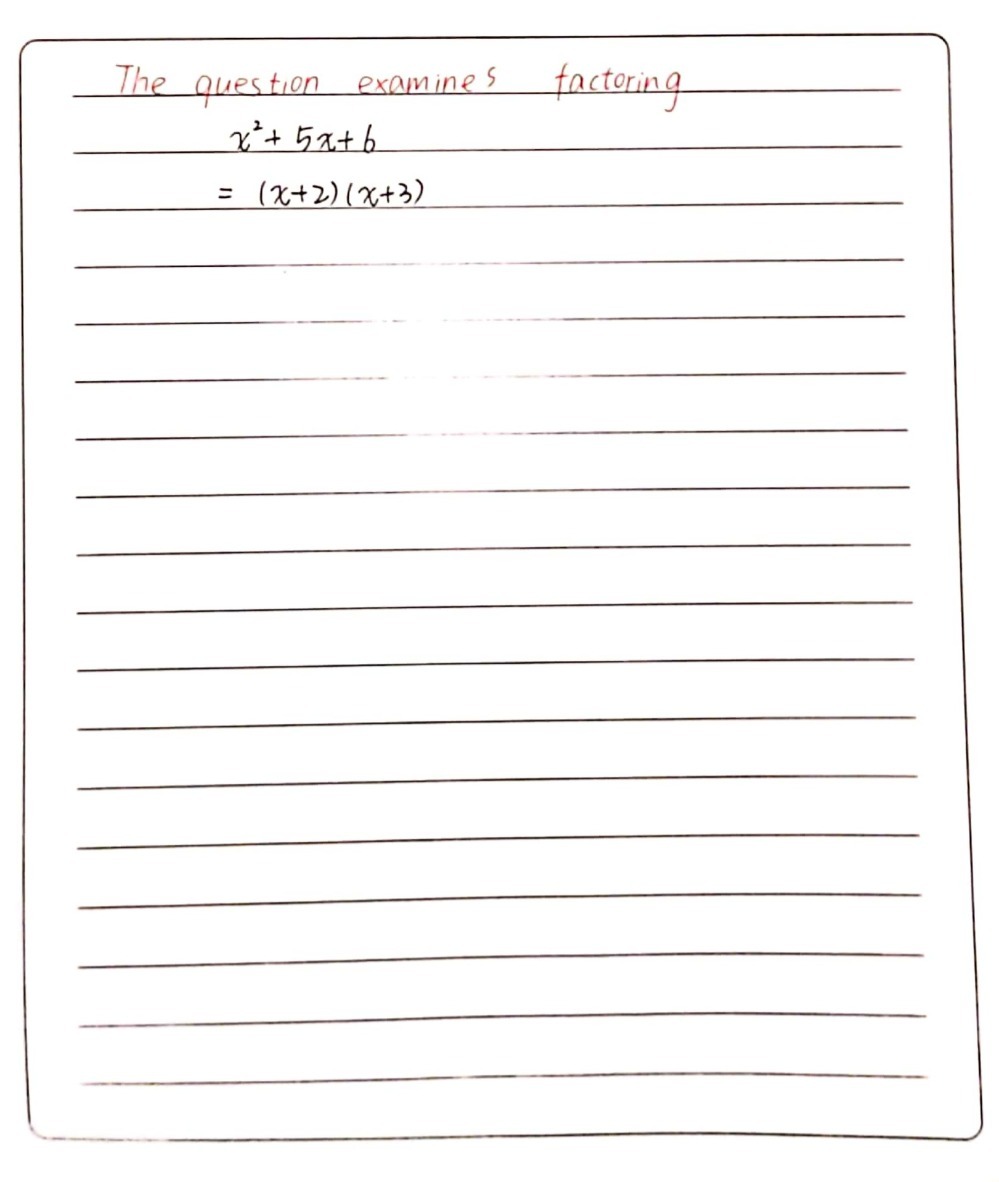 The question examines factoring
x² + 5x + 6
= (x+2)(x+3)